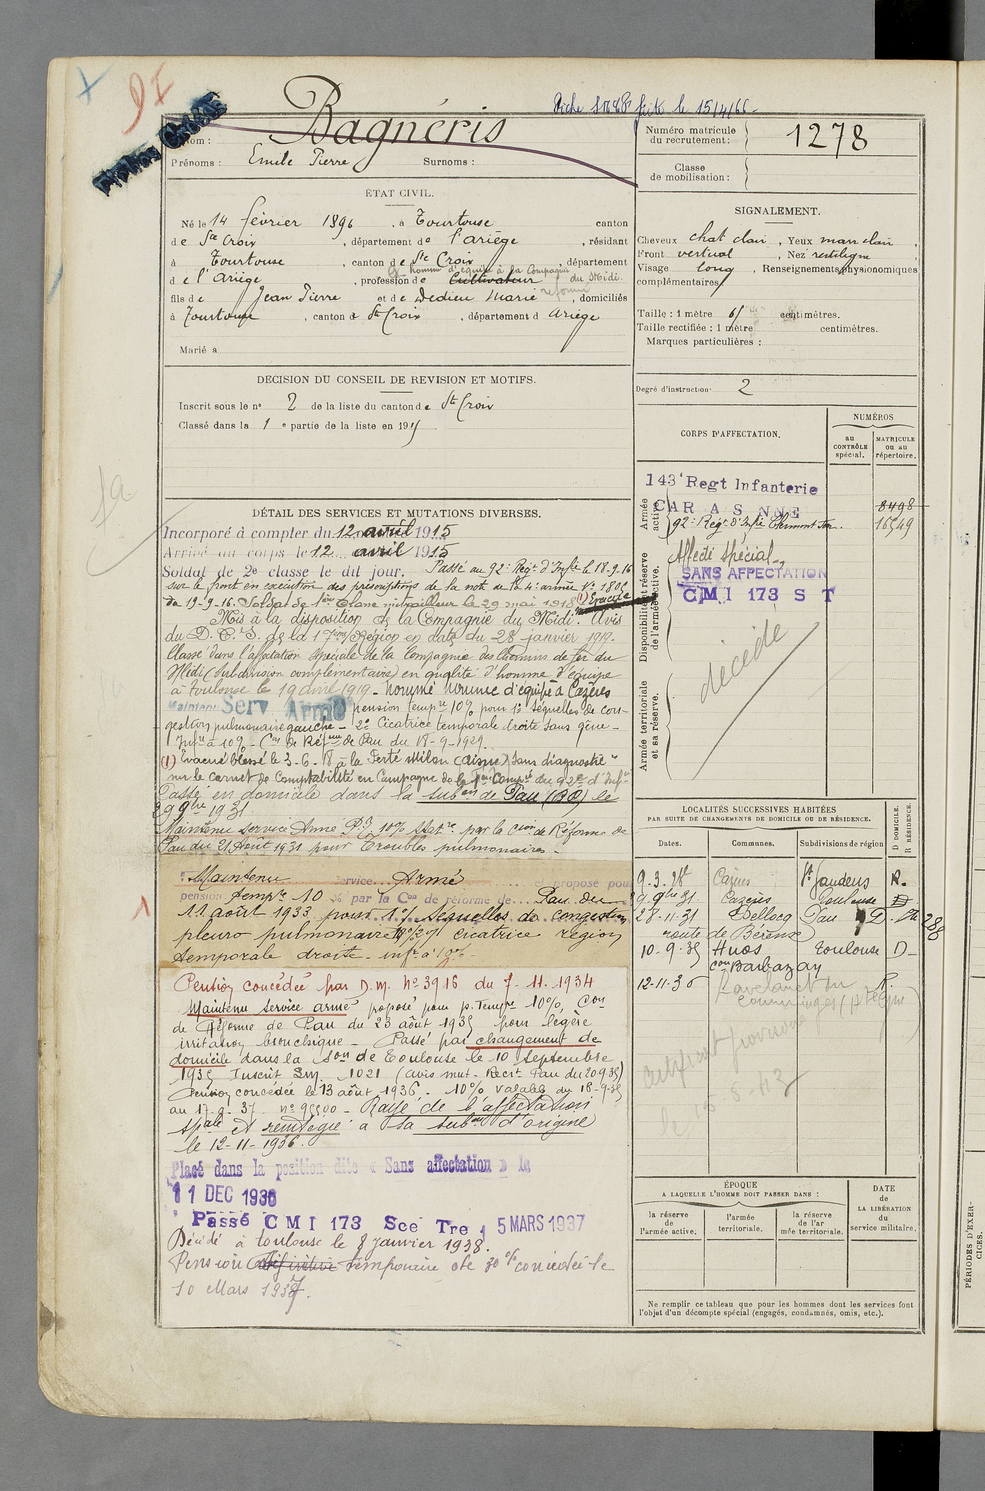 91
Fiche faite le 15/4/66
Bagnéris
Nom :
Prénoms : Emile Pierre Surnoms :
Numéro matricule du recrutement : 1278
Classe de mobilisation :
ÉTAT CIVIL.
Né le 14 février 1896, à Tourtouse canton
de Ste Croix, département de l'ariège, résidant
à Tourtouse, canton de Ste Croix, département
homme d'équipe à la Compagnie du Midi
de l'Ariège, profession de Cultivateur
fils de Jean Pierre et de Dedieu Marie, domiciliés
à Tourtouse, canton d Ste Croix, département d Ariège
Marié à
SIGNALEMENT.
Cheveux chat clair, Yeux marr clair,
Front vertical, Nez rectiligne
Visage long, Renseignements physionomiques
complémentaires
Taille : 1 mètre 61 centimètres.
Taille rectifiée : 1 mètre centimètres.
Marques particulières :
Degré d'instruction : 2
DECISION DU CONSEIL DE REVISION ET MOTIFS.
Inscrit sous le n° 2 de la liste du canton de Ste Croix
Classé dans la 1 e partie de la liste en 1915
DÉTAIL DES SERVICES ET MUTATIONS DIVERSES.
Incorporé à compter du 12 avril 1915
Arrivé au corps le 12 avril 1915
Soldat de 2e classe le dit jour. Passé au 92e Régt d'Infie le 18.9.16
sur le front en exécution des prescriptions de la note de la 4e armée
du 19-9-16. Soldat de 1ère classe mitrailleur le 29 mai 1918 (1)
Mis à la disposition de la Compagnie du Midi. Avis
du D. C. S. de la 17me Région en date du 28 janvier 1919.
Classé dans l'affectation spéciale de la Compagnie des Chemins de fer du
Midi (Subdivision complémentaire) en qualité d'homme d'équipe
à Toulouse le 19 avril 1919 - nommé homme d'équipe à Cazères
Maintenu Serv Armé pension tempre 10% pour 1° séquelles de con-
gestion pulmonaire gauche - 2° Cicatrice temporale droite sans gêne -
Infre à 10% - Con de Réfme de Pau du 18-9-1929.
(1) Evacué blessé le 3-6-18 à la Ferté Milon (aisne) "sans diagnostic"
sur le Carnet de Comptabilité en Campagne de la 1ère Compie du 92e d'Infie
Passé en domicile dans la subon de Pau (BP) le
9 9bre 1931
Maintenu service Armé 10% par la Con de Réforme de
Pau du 21 Août 1931 pour Troubles pulmonaires -
Maintenu service Armé et proposé pour
pension tempre 10 % par la Con de réforme de Pau du
11 août 1933 pour 1°/ Séquelles de congestion
pleuro pulmonaire 2°/ cicatrice région
temporale droite - infre à 10%
Pension concédée par D.M. N° 3916 du 7.11.1934
Maintenu service armé proposé pour p. tempre 10%, Con
de Réforme de Pau du 23 août 1935 pour légère
irritation bronchique - Passé par changement de
domicile dans la Son de Toulouse le 10 septembre
1935 Inscrit 1021 (avis mut. Recrt Pau du 20.9.35)
Pension concédée le 13 août 1936. 10% valable du 18-9-35
au 17-9-37. n° 95500 - Rayé de l'affectation
spale et réintégré à sa subon d'origine
le 12-11-1936.
Placé dans la position dite « Sans affectation » le
11 DEC 1936
Passé C M I 173 Sce Tre 15 MARS 1937
Décédé à Toulouse le 8 janvier 1938.
Pension temporaire de 30% concédée le
10 Mars 1937.
CORPS D'AFFECTATION.
NUMÉROS
au CONTRÔLE spécial.
MATRICULE ou au répertoire.
Armée active.
143e Regt Infanterie
CARCASSONNE 8498
92e Régt d'Infie Clermont Fer. 16549
Disponibilité et réserve de l'armée active.
Affecté Spécial
SANS AFFECTATION
CMI 173 S T
Armée territoriale et sa réserve.
décédé
LOCALITÉS SUCCESSIVES HABITÉES
PAR SUITE DE CHANGEMENTS DE DOMICILE OU DE RÉSIDENCE.
Dates.
Communes.
Subdivisions de région
D DOMICILE.
R RÉSIDENCE.
9.3.28 Cazères St Gaudens R.
9 9bre 31 Cazères Toulouse D
28-11-31 Bellocq Pau D. 288
route de Bérenx
10.9.35 Huos Toulouse D
con Barbazan
12-11-36 R.
15-8-43
ÉPOQUE
A LAQUELLE L'HOMME DOIT PASSER DANS :
la réserve de l'armée active.
l'armée territoriale.
la réserve de l'armée territoriale.
DATE de LA LIBÉRATION du service militaire.
Ne remplir ce tableau que pour les hommes dont les services font
l'objet d'un décompte spécial (engagés, condamnés, omis, etc.).
PÉRIODES D'EXERCICES.